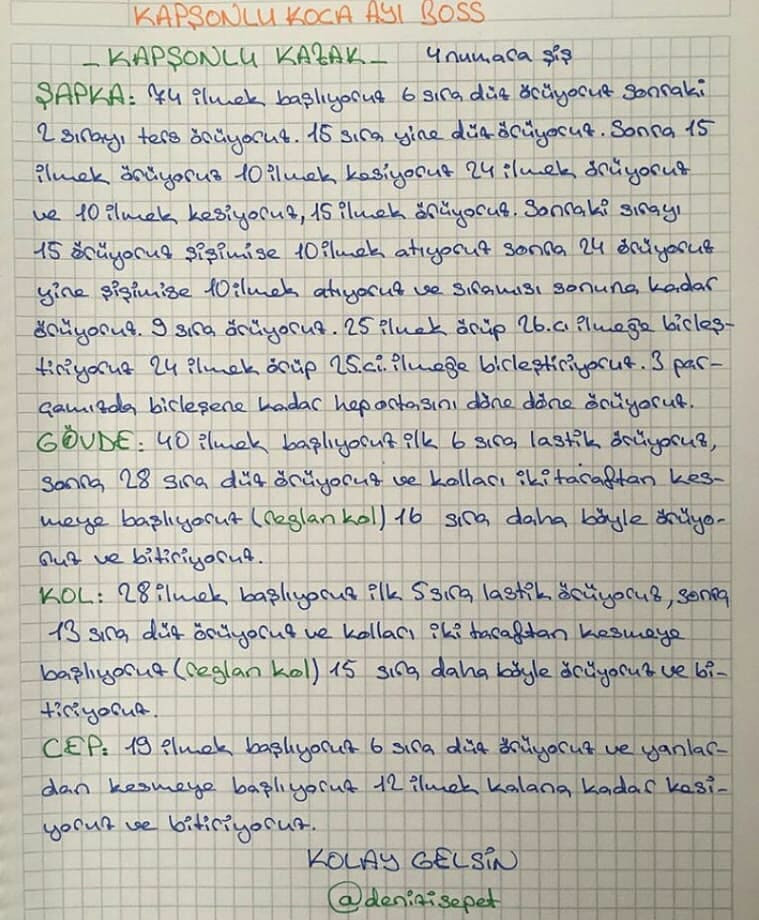 KAPŞONLU KOCA AYI BOSS
- KAPŞONLU KAZAK - 4 numara şiş
ŞAPKA: 74 ilmek başlıyoruz 6 sıra düz örüyoruz sonraki
2 sırayı ters örüyoruz. 15 sıra yine düz örüyoruz. Sonra 15
ilmek örüyoruz 10 ilmek kesiyoruz 24 ilmek örüyoruz
ve 10 ilmek kesiyoruz, 15 ilmek örüyoruz. Sonraki sırayı
15 örüyoruz şişimize 10 ilmek atıyoruz sonra 24 örüyoruz
yine şişimize 10 ilmek atıyoruz ve sıramızı sonuna kadar
örüyoruz. 9 sıra örüyoruz. 25 ilmek örüp 26.cı ilmeğe birleş-
tiriyoruz 24 ilmek örüp 25.ci. ilmeğe birleştiriyoruz. 3 par-
çamızda birleşene kadar hep ortasını döne döne örüyoruz.
GÖVDE: 40 ilmek başlıyoruz ilk 6 sıra lastik örüyoruz,
sonra 28 sıra düz örüyoruz ve kolları iki taraftan kes-
meye başlıyoruz (reglan kol) 16 sıra daha böyle örüyo-
ruz ve bitiriyoruz.
KOL: 28 ilmek başlıyoruz ilk 5 sıra lastik örüyoruz, sonra
13 sıra düz örüyoruz ve kolları iki taraftan kesmeye
başlıyoruz (reglan kol) 15 sıra daha böyle örüyoruz ve bi-
tiriyoruz.
CEP: 19 ilmek başlıyoruz 6 sıra düz örüyoruz ve yanlar-
dan kesmeye başlıyoruz 12 ilmek kalana kadar kesi-
yoruz ve bitiriyoruz.
KOLAY GELSİN
@denizisepet